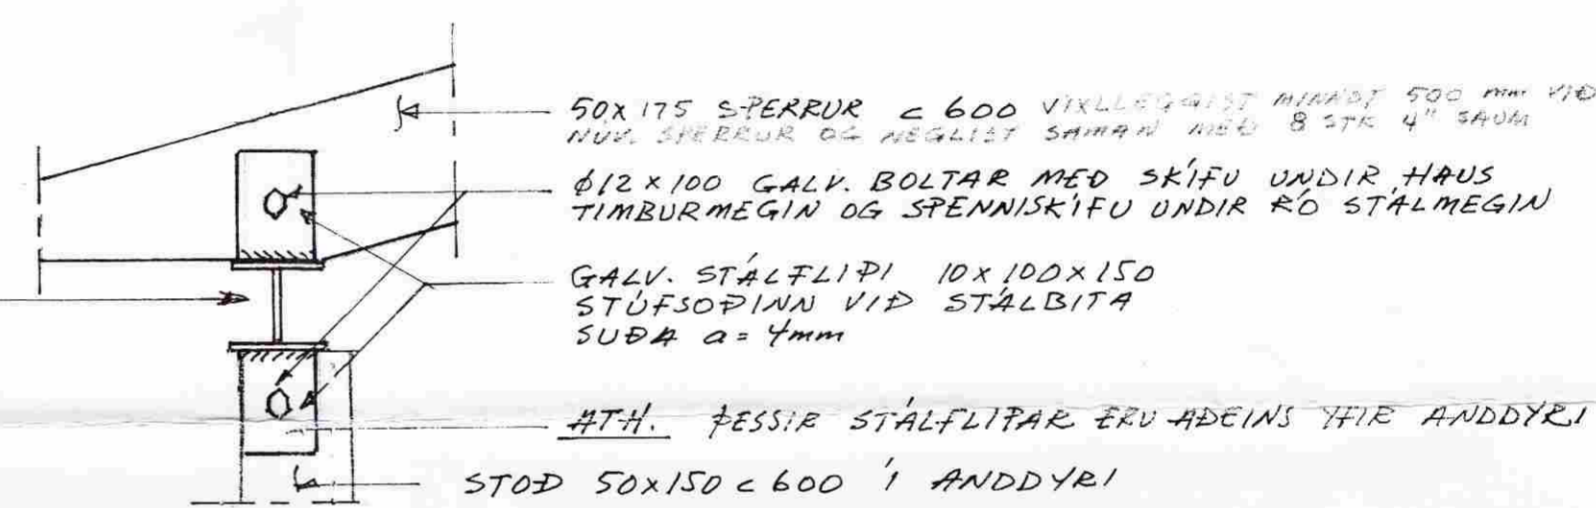 50x175 SPERRUR c 600 VÍXLLEGGIST MINNST 500 mm VIÐ
NÚV. SPERRUR OG NEGLIST SAMAN MEÐ 8 STK 4" SAUM
ϕ12x100 GALV. BOLTAR MEÐ SKÍFU UNDIR HAUS
TIMBURMEGIN OG SPENNISKÍFU UNDIR RÓ STÁLMEGIN
GALV. STÁLFLIPI 10x100x150
STÚFSOÐINN VIÐ STÁLBITA
SUÐA a = 4mm
ATH. ÞESSIR STÁLFLIPAR ERU AÐEINS YFIR ANDDYRI
STOÐ 50x150 c 600 Í ANDDYRI